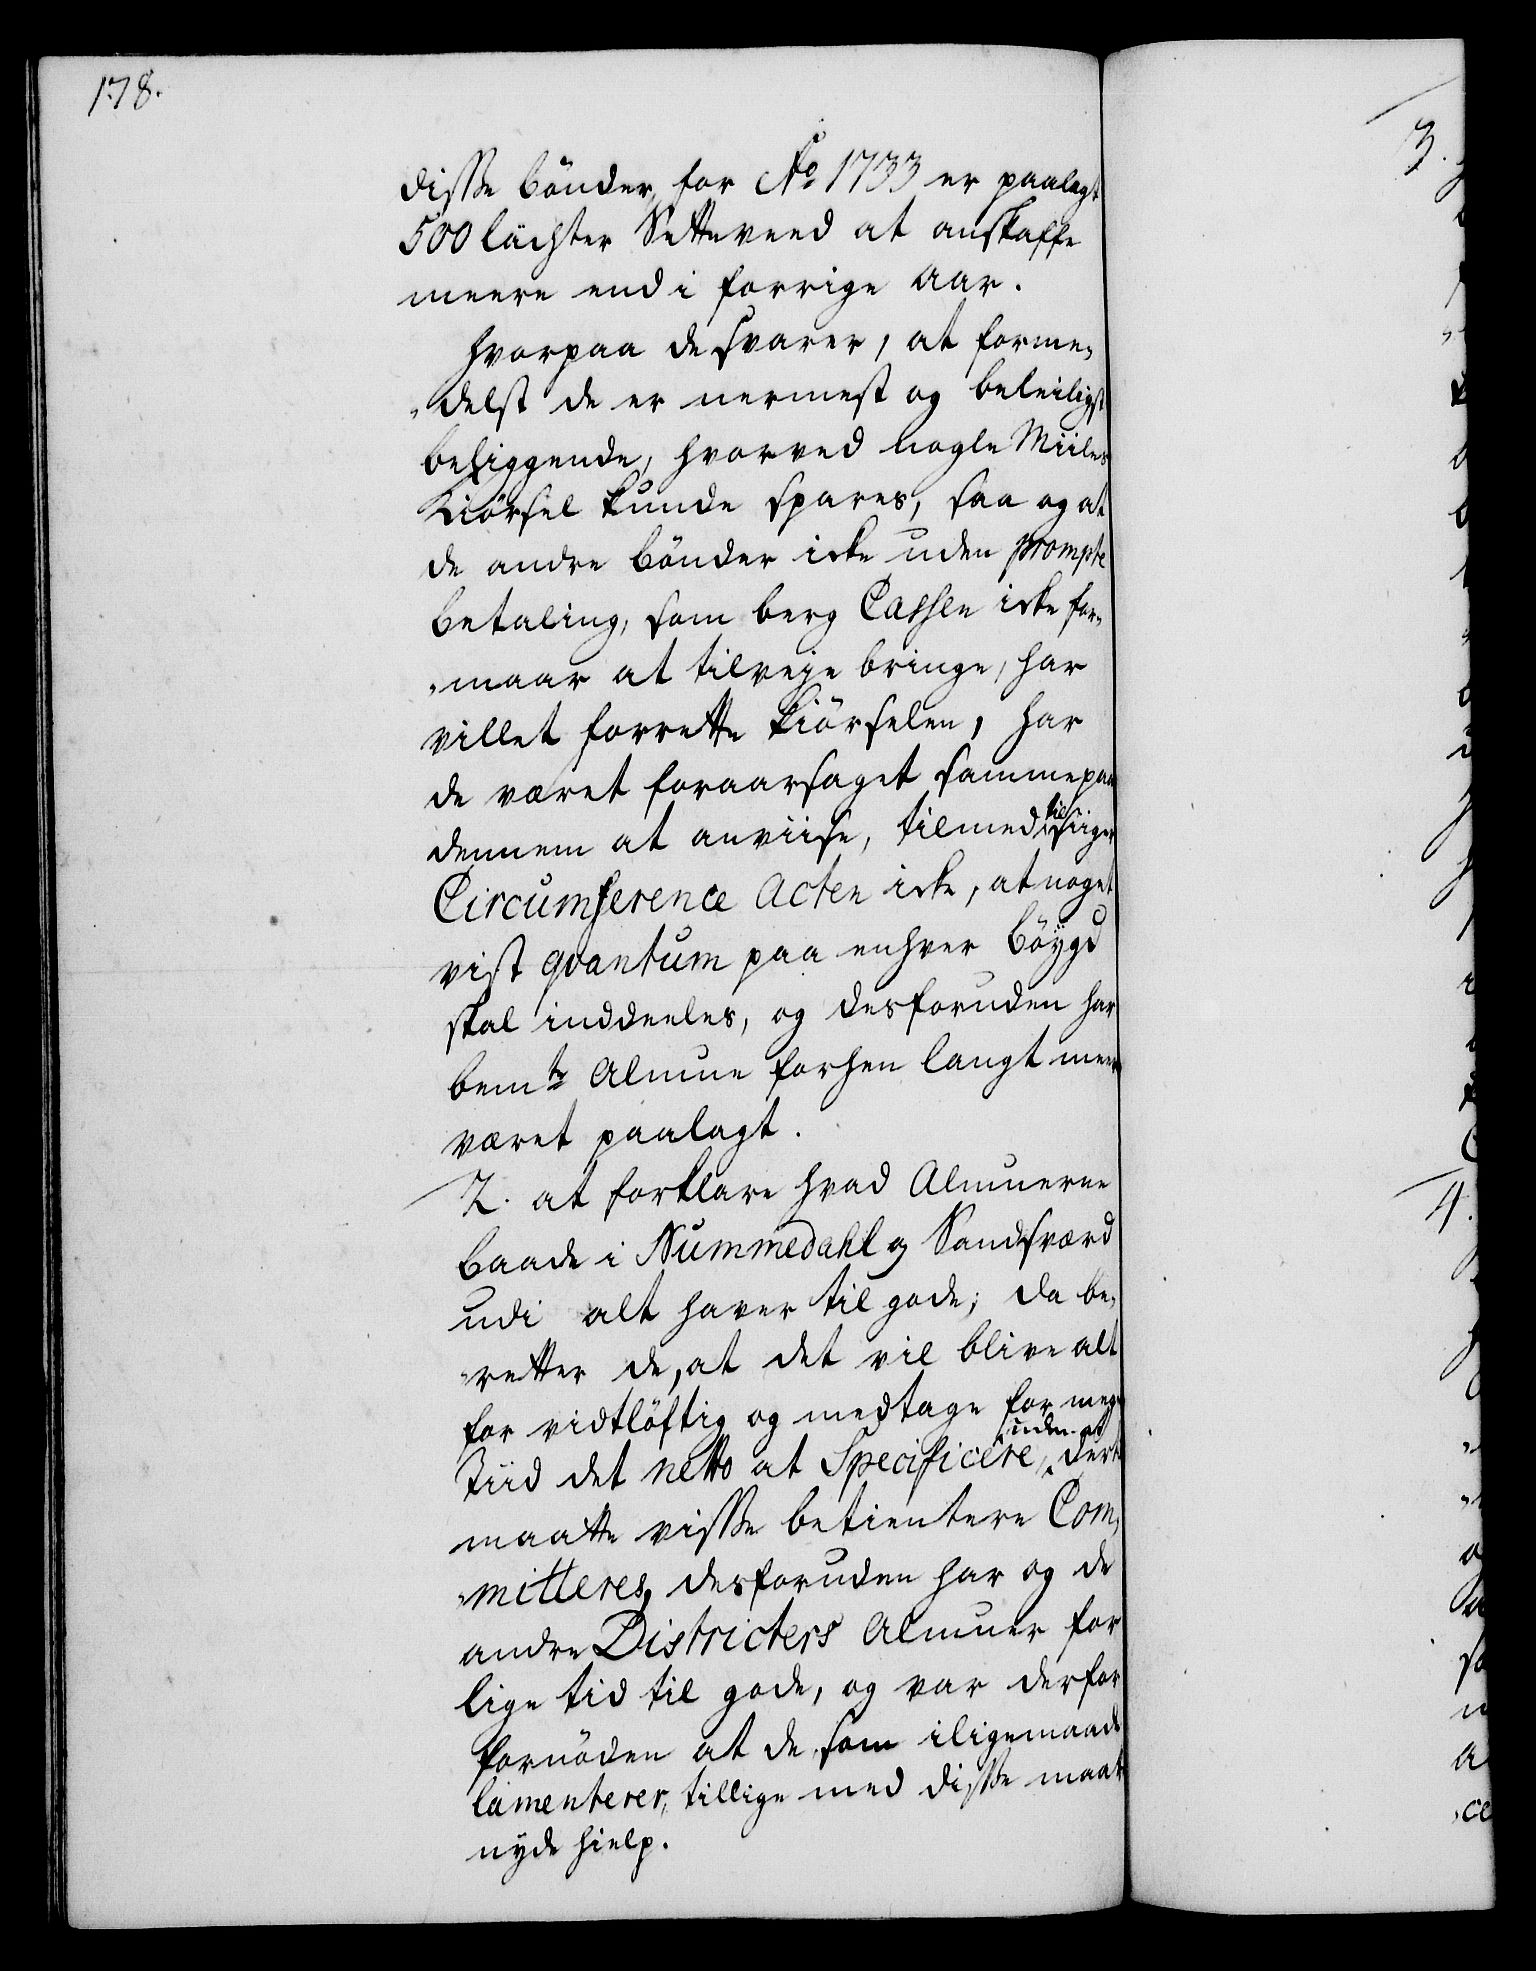 178.
disse bönder, for No 1733 er paalagt
500 lachter Setteveed at anskaffe
meere end i forrige aar.
hvorpaa de svarer, at forme-
-delst de er nermest og beleiligst
beliggende, hvorved nogle Miiles
Kiörsel kunde spares, saa og at
de andre bönder icke uden prompte
betaling, som berg Cassen icke for-
-maar at tilveje bringe, har
villet forrette kiörselen, har
de været foraarsaget samme paa
dennem at anviise, tilmed tilsiiger
Circumference Acten icke, at noget
vist qvantum paa enhver böygd
skal inddeeles, og desforuden har
bemte Almue forhen langt meere
været paalagt.
2. at forklare hvad Almuerne
baade i Nummedahl og Sandsværd
udi alt haver til gode; da be-
-retter de, at det vil blive alt
for vidtlöftig og medtage for megen
Tiid det netto at Specificere, uden at dertil
maatte visse betientere Com-
-mitteres, desforuden har og de
andre Districters Almuer for
lige tid til gode, og var derfor
fornöden at de, som iligemaade
lamenterer, tillige med disse maatte
nyde hielp.
3.
4.